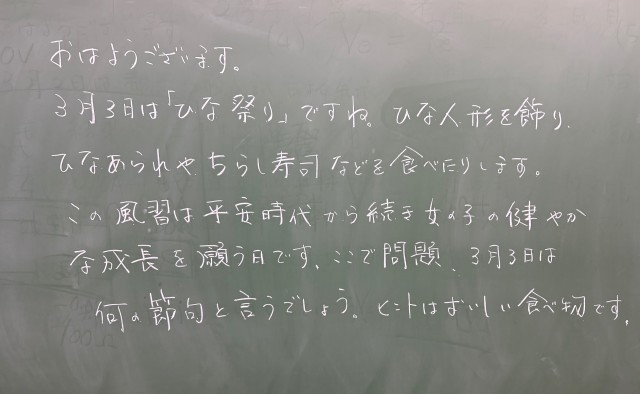 おはようございます。
3月3日は「ひな祭り」ですね。ひな人形を飾り、
ひなあられや、ちらし寿司などを食べたりします。
この風習は平安時代から続き女の子の健やか
な成長を願う日です、ここで問題、3月3日は
何の節句と言うでしょう。ヒントはおいしい食べ物です。